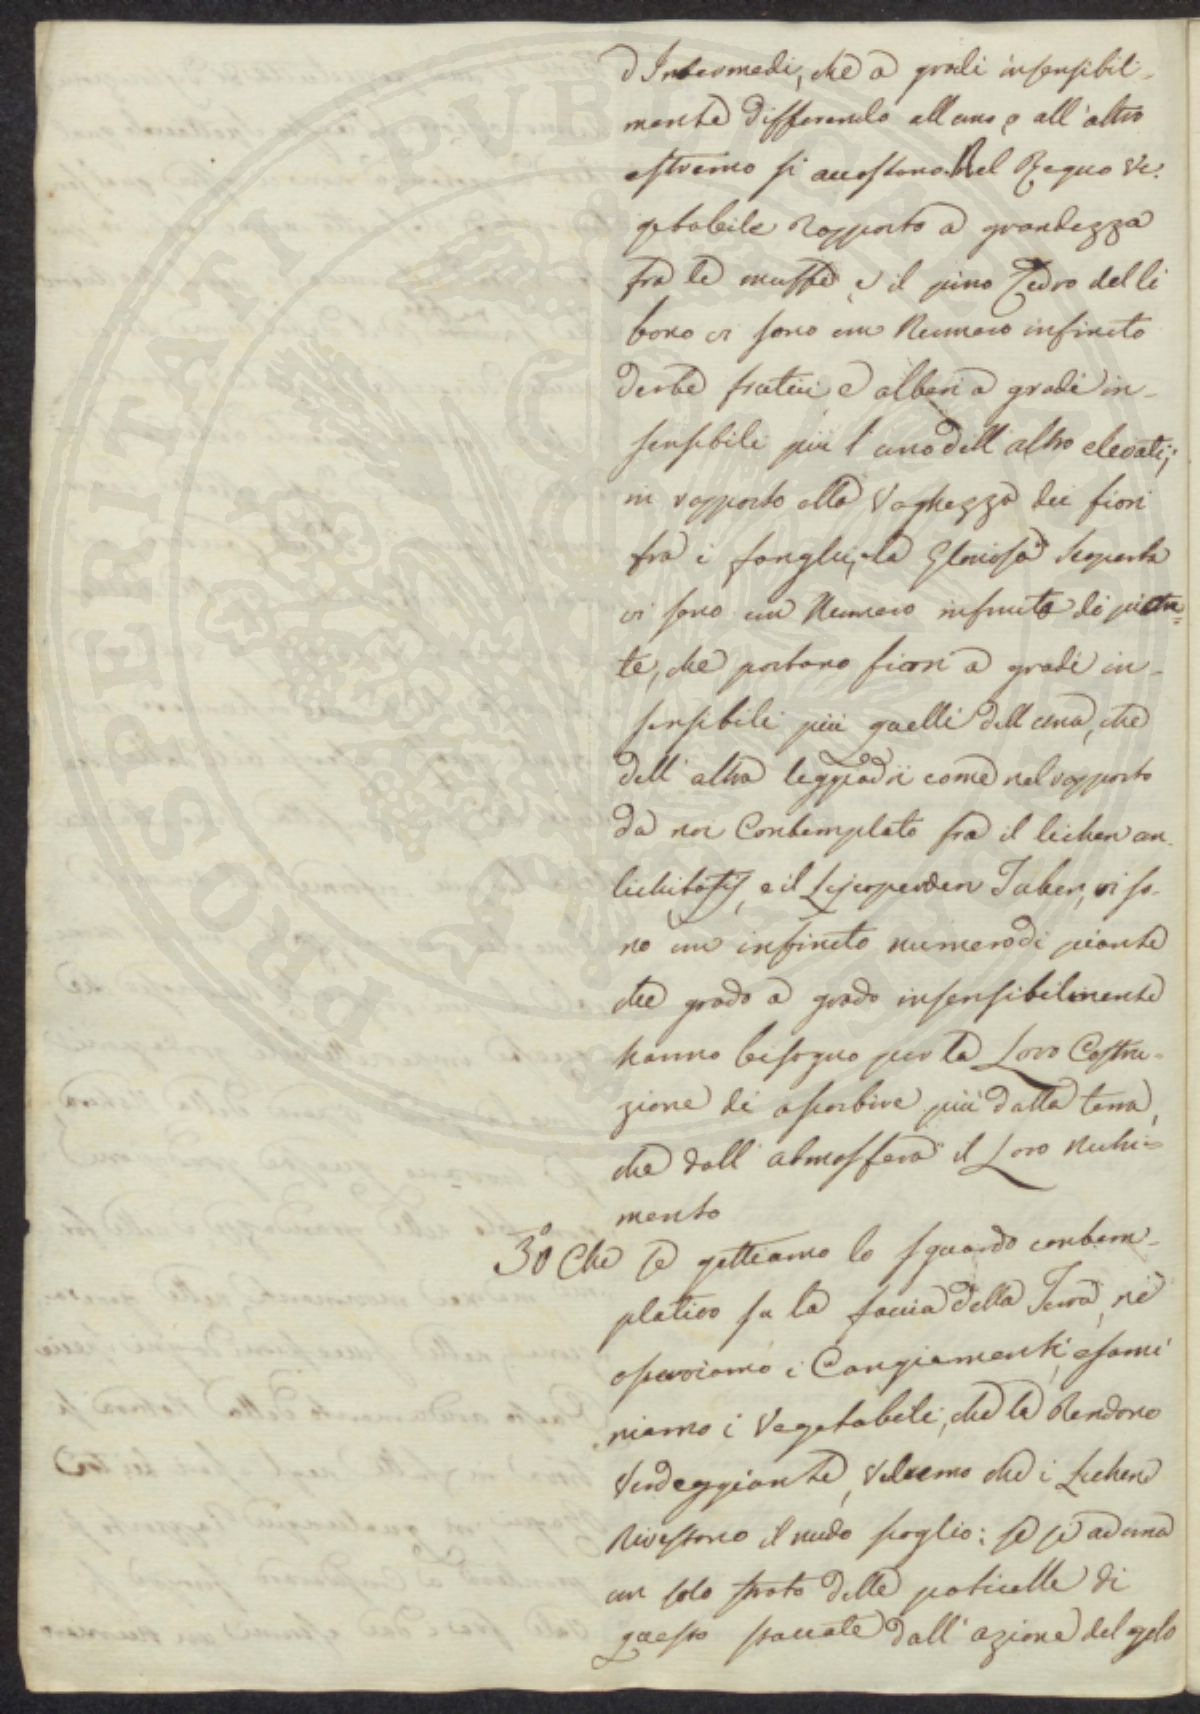 d'Intermedi, che a gradi insensibil-
mente differendo all uno e all'altro
estremo si accostano. Nel Regno Ve-
getabile Rapporto a grandezza
fra le muffe e il pino Cedro del Li
bano vi sono un Numero infinito
d'erbe frutici e alberi a gradi in-
sensibili più l'uno dell'altro elevati;
in rapporto alla Vaghezza dei fiori
fra i fonghi, e la Gloriosa Superba
vi sono un Numero infinito di pian
te, che portano fiori a gradi in-
sensibili più quelli dell una, che
dell' altra leggiadri come nel rapporto
da noi Contemplato fra il lichen
e il Lycoperdon Tuber, vi so-
no un infinito numero di piante
che grado a grado insensibilmente
hanno bisogno per la Loro Costru-
zione di assorbire più dalla terra,
che dall' atmosfera il Loro Nutri-
mento
3º Che se gettiamo lo sguardo contem-
plativo su la faccia della Terra, né
osserviamo i Cangiamenti, esami
niamo i Vegetabili, che la Rendono
Verdeggiante, Vedremo che i Lichen
Rivestono il nudo scoglio: se si aduna
un solo strato delle particelle di
questo staccate dall'azione del gelo
PROSPERITATI PUBLICAE